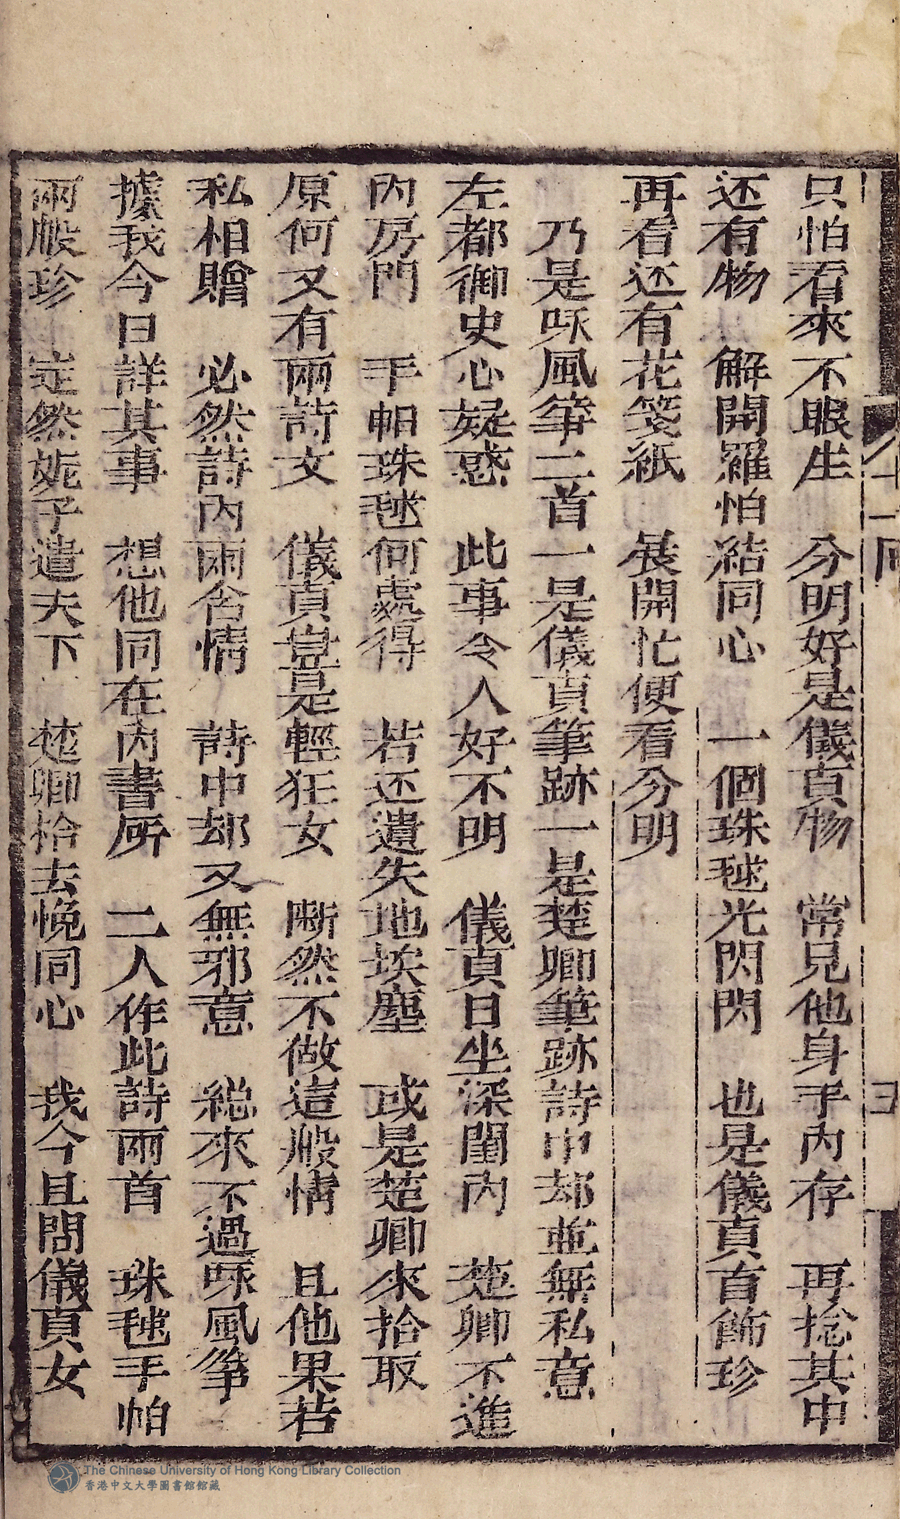 十一回
三
只怕看來不眼生　分明好是儀貞物　常見他身手內存　再捻其中
还有物　解開羅怕結同心　一個珠毬光閃閃　也是儀貞首飾珍
再看还有花箋紙　展開忙便看分明
乃是㖼風筝二首一是儀貞筆跡一是楚卿筆跡詩中却並無私意
左都御史心疑惑　此事令人好不明　儀貞日坐深閨內　楚卿不進
內房門　手帕珠毬何處得　若还遺失地埃塵　或是楚卿來拾取
原何又有兩詩文　儀貞豈是輕狂女　斷然不做這般情　且他果若
私相贈　必然詩內兩含情　詩中却又無邪意　総來不過㖼風筝
據我今日詳其事　想他同在內書房　二人作此詩兩首　珠毬手帕
兩般珍　定然妮子遣天下　楚卿拾去悅同心　我今且問儀貞女
The Chinese University of Hong Kong Library Collection
香港中文大學圖書館館藏